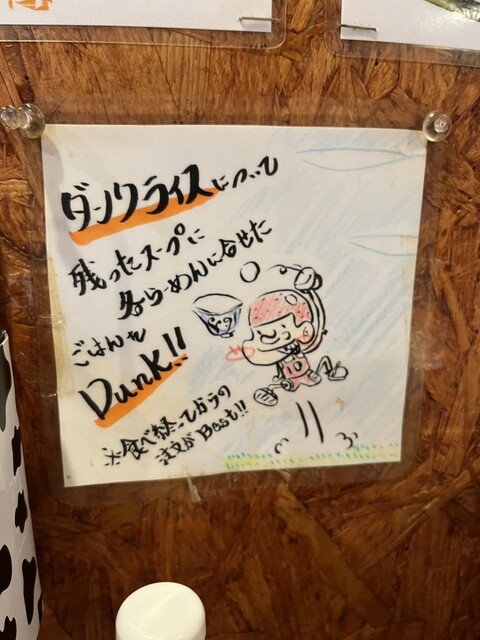 ダンクライスについて
残ったスープに
各らーめんに合せた
ごはんを
Dunk!!
※食べ終ってからの
注文がBest!!